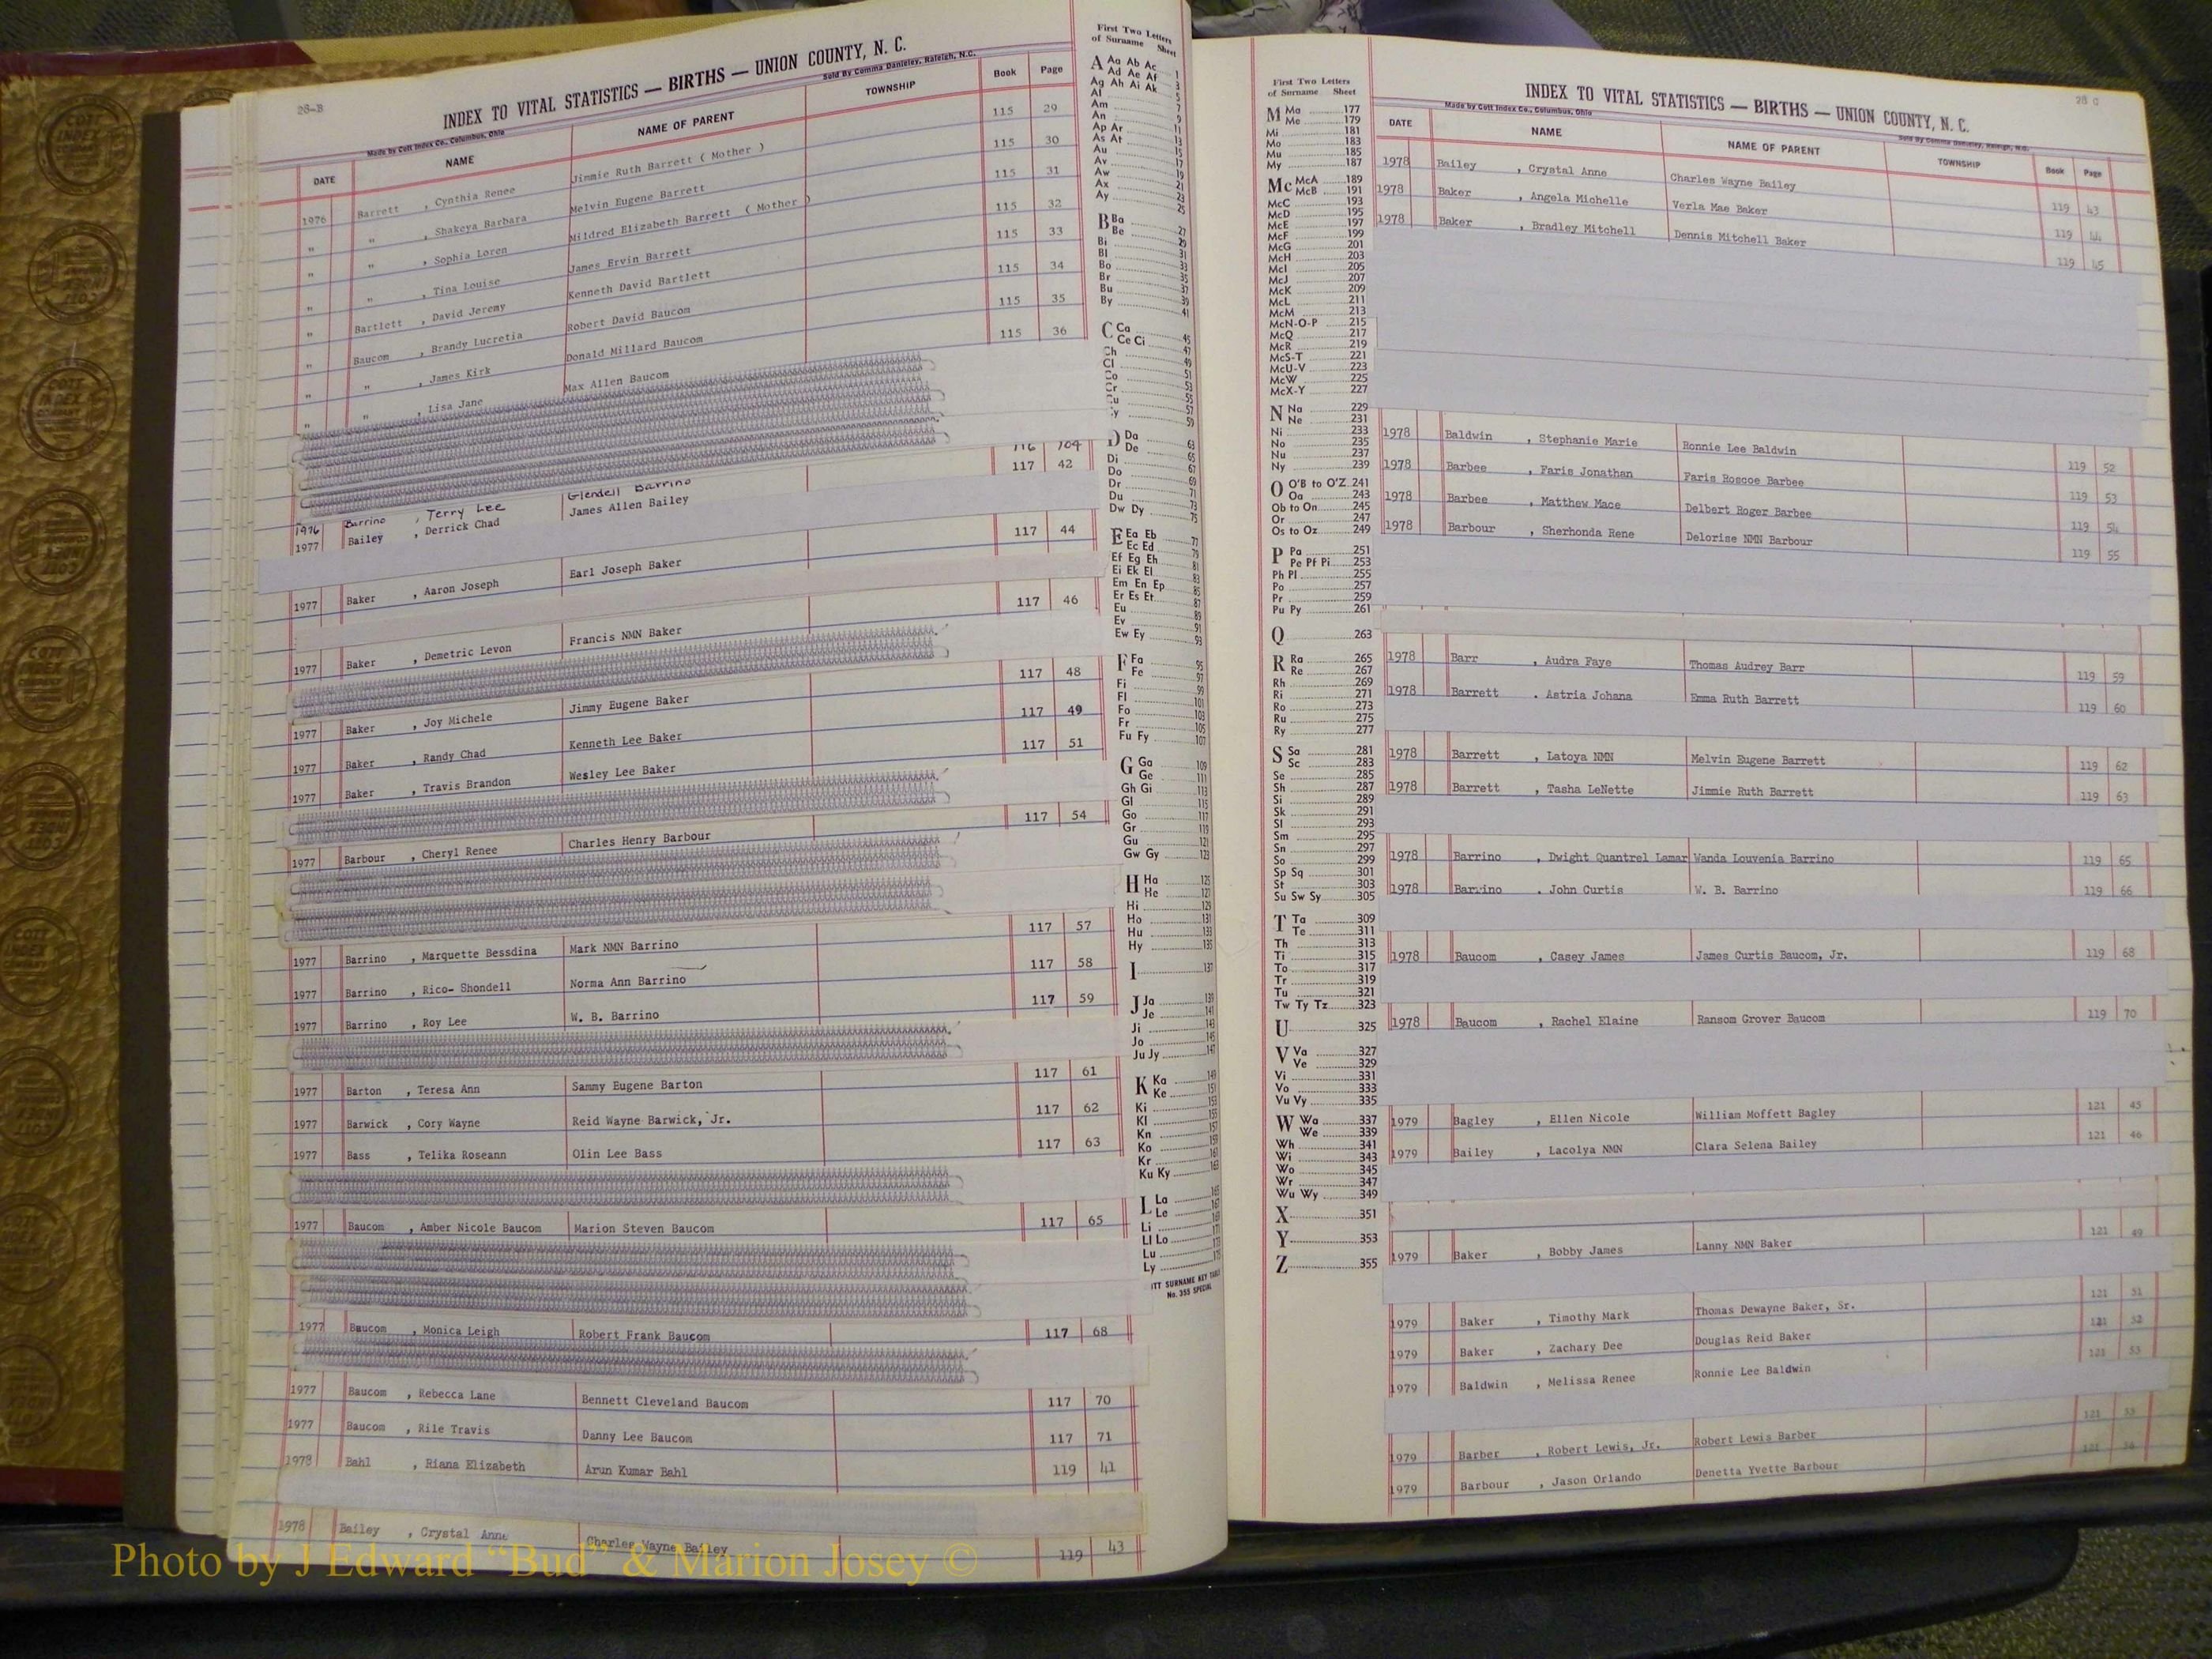 28-B
INDEX TO VITAL STATISTICS — BIRTHS — UNION COUNTY, N. C.
Made by Cott Index Co., Columbus, Ohio
Sold By Comma Danieley, Raleigh, N.C.
DATE NAME NAME OF PARENT TOWNSHIP Book Page
1976 Barrett , Cynthia Renee Jimmie Ruth Barrett ( Mother ) 115 29
" " , Shakeya Barbara Melvin Eugene Barrett 115 30
" " , Sophia Loren Mildred Elizabeth Barrett ( Mother ) 115 31
" " , Tina Louise James Ervin Barrett 115 32
" Bartlett , David Jeremy Kenneth David Bartlett 115 33
" Baucom , Brandy Lucretia Robert David Baucom 115 34
" " , James Kirk Donald Millard Baucom 115 35
" " , Lisa Jane Max Allen Baucom 115 36
1976 Barrino , Terry Lee Glendell Barrino 116 704
1977 Bailey , Derrick Chad James Allen Bailey 117 42
1977 Baker , Aaron Joseph Earl Joseph Baker 117 44
1977 Baker , Demetric Levon Francis NMN Baker 117 46
1977 Baker , Joy Michele Jimmy Eugene Baker 117 48
1977 Baker , Randy Chad Kenneth Lee Baker 117 49
1977 Baker , Travis Brandon Wesley Lee Baker 117 51
1977 Barbour , Cheryl Renee Charles Henry Barbour 117 54
1977 Barrino , Marquette Bessdina Mark NMN Barrino 117 57
1977 Barrino , Rico- Shondell Norma Ann Barrino 117 58
1977 Barrino , Roy Lee W. B. Barrino 117 59
1977 Barton , Teresa Ann Sammy Eugene Barton 117 61
1977 Barwick , Cory Wayne Reid Wayne Barwick, Jr. 117 62
1977 Bass , Telika Roseann Olin Lee Bass 117 63
1977 Baucom , Amber Nicole Baucom Marion Steven Baucom 117 65
1977 Baucom , Monica Leigh Robert Frank Baucom 117 68
1977 Baucom , Rebecca Lane Bennett Cleveland Baucom 117 70
1977 Baucom , Rile Travis Danny Lee Baucom 117 71
1978 Bahl , Riana Elizabeth Arun Kumar Bahl 119 41
1978 Bailey , Crystal Anne Charles Wayne Bailey 119 43
First Two Letters
of Surname Sheet
A Aa Ab Ac 1
Ad Ae Af 3
Ag Ah Ai Ak 5
Al 7
Am 9
An 11
Ap Ar 13
As At 15
Au 17
Av 19
Aw 21
Ax 23
Ay 25
B Ba 27
Be 29
Bi 31
Bl 33
Bo 35
Br 37
Bu 39
By 41
C Ca 45
Ce Ci 47
Ch 49
Cl 51
Co 53
Cr 55
Cu 57
Cy 59
D Da 63
De 65
Di 67
Do 69
Dr 71
Du 73
Dw Dy 75
E Ea Eb 77
Ec Ed 79
Ef Eg Eh 81
Ei Ek El 83
Em En Ep 85
Er Es Et 87
Eu 89
Ev 91
Ew Ey 93
F Fa 95
Fe 97
Fi 99
Fl 101
Fo 103
Fr 105
Fu Fy 107
G Ga 109
Ge 111
Gh Gi 113
Gl 115
Go 117
Gr 119
Gu 121
Gw Gy 123
H Ha 125
He 127
Hi 129
Ho 131
Hu 133
Hy 135
I 137
J Ja 139
Je 141
Ji 143
Jo 145
Ju Jy 147
K Ka 149
Ke 151
Ki 153
Kl 155
Kn 157
Ko 159
Kr 161
Ku Ky 163
L La 165
Le
Li
Ll Lo
Lu
Ly
SURNAME KEY
No. 355 SPECIAL
First Two Letters
of Surname Sheet
M Ma 177
Me 179
Mi 181
Mo 183
Mu 185
My 187
Mc McA 189
McB 191
McC 193
McD 195
McE 197
McF 199
McG 201
McH 203
McI 205
McJ 207
McK 209
McL 211
McM 213
McN-O-P 215
McQ 217
McR 219
McS-T 221
McU-V 223
McW 225
McX-Y 227
N Na 229
Ne 231
Ni 233
No 235
Nu 237
Ny 239
O O'B to O'Z 241
Oa 243
Ob to On 245
Or 247
Os to Oz 249
P Pa 251
Pe Pf Pi 253
Ph Pl 255
Po 257
Pr 259
Pu Py 261
Q 263
R Ra 265
Re 267
Rh 269
Ri 271
Ro 273
Ru 275
Ry 277
S Sa 281
Sc 283
Se 285
Sh 287
Si 289
Sk 291
Sl 293
Sm 295
Sn 297
So 299
Sp Sq 301
St 303
Su Sw Sy 305
T Ta 309
Te 311
Th 313
Ti 315
To 317
Tr 319
Tu 321
Tw Ty Tz 323
U 325
V Va 327
Ve 329
Vi 331
Vo 333
Vu Vy 335
W Wa 337
We 339
Wh 341
Wi 343
Wo 345
Wr 347
Wu Wy 349
X 351
Y 353
Z 355
28 C
INDEX TO VITAL STATISTICS — BIRTHS — UNION COUNTY, N. C.
Made by Cott Index Co., Columbus, Ohio
Sold By Comma Danieley, Raleigh, N.C.
DATE NAME NAME OF PARENT TOWNSHIP Book Page
1978 Bailey , Crystal Anne Charles Wayne Bailey 119 43
1978 Baker , Angela Michelle Verla Mae Baker 119 44
1978 Baker , Bradley Mitchell Dennis Mitchell Baker 119 45
1978 Baldwin , Stephanie Marie Ronnie Lee Baldwin 119 52
1978 Barbee , Faris Jonathan Faris Roscoe Barbee 119 53
1978 Barbee , Matthew Mace Delbert Roger Barbee 119 54
1978 Barbour , Sherhonda Rene Delorise NMN Barbour 119 55
1978 Barr , Audra Faye Thomas Audrey Barr 119 59
1978 Barrett , Astria Johana Emma Ruth Barrett 119 60
1978 Barrett , Latoya NMN Melvin Eugene Barrett 119 62
1978 Barrett , Tasha LeNette Jimmie Ruth Barrett 119 63
1978 Barrino , Dwight Quantrel Lamar Wanda Louvenia Barrino 119 65
1978 Barrino , John Curtis W. B. Barrino 119 66
1978 Baucom , Casey James James Curtis Baucom, Jr. 119 68
1978 Baucom , Rachel Elaine Ransom Grover Baucom 119 70
1979 Bagley , Ellen Nicole William Moffett Bagley 121 45
1979 Bailey , Lacolya NMN Clara Selena Bailey 121 46
1979 Baker , Bobby James Lanny NMN Baker 121 49
1979 Baker , Timothy Mark Thomas Dewayne Baker, Sr. 121 51
1979 Baker , Zachary Dee Douglas Reid Baker 121 52
1979 Baldwin , Melissa Renee Ronnie Lee Baldwin 121 53
1979 Barber , Robert Lewis, Jr. Robert Lewis Barber 121 55
1979 Barbour , Jason Orlando Denetta Yvette Barbour 121 56
Photo by J Edward "Bud" & Marion Josey ©